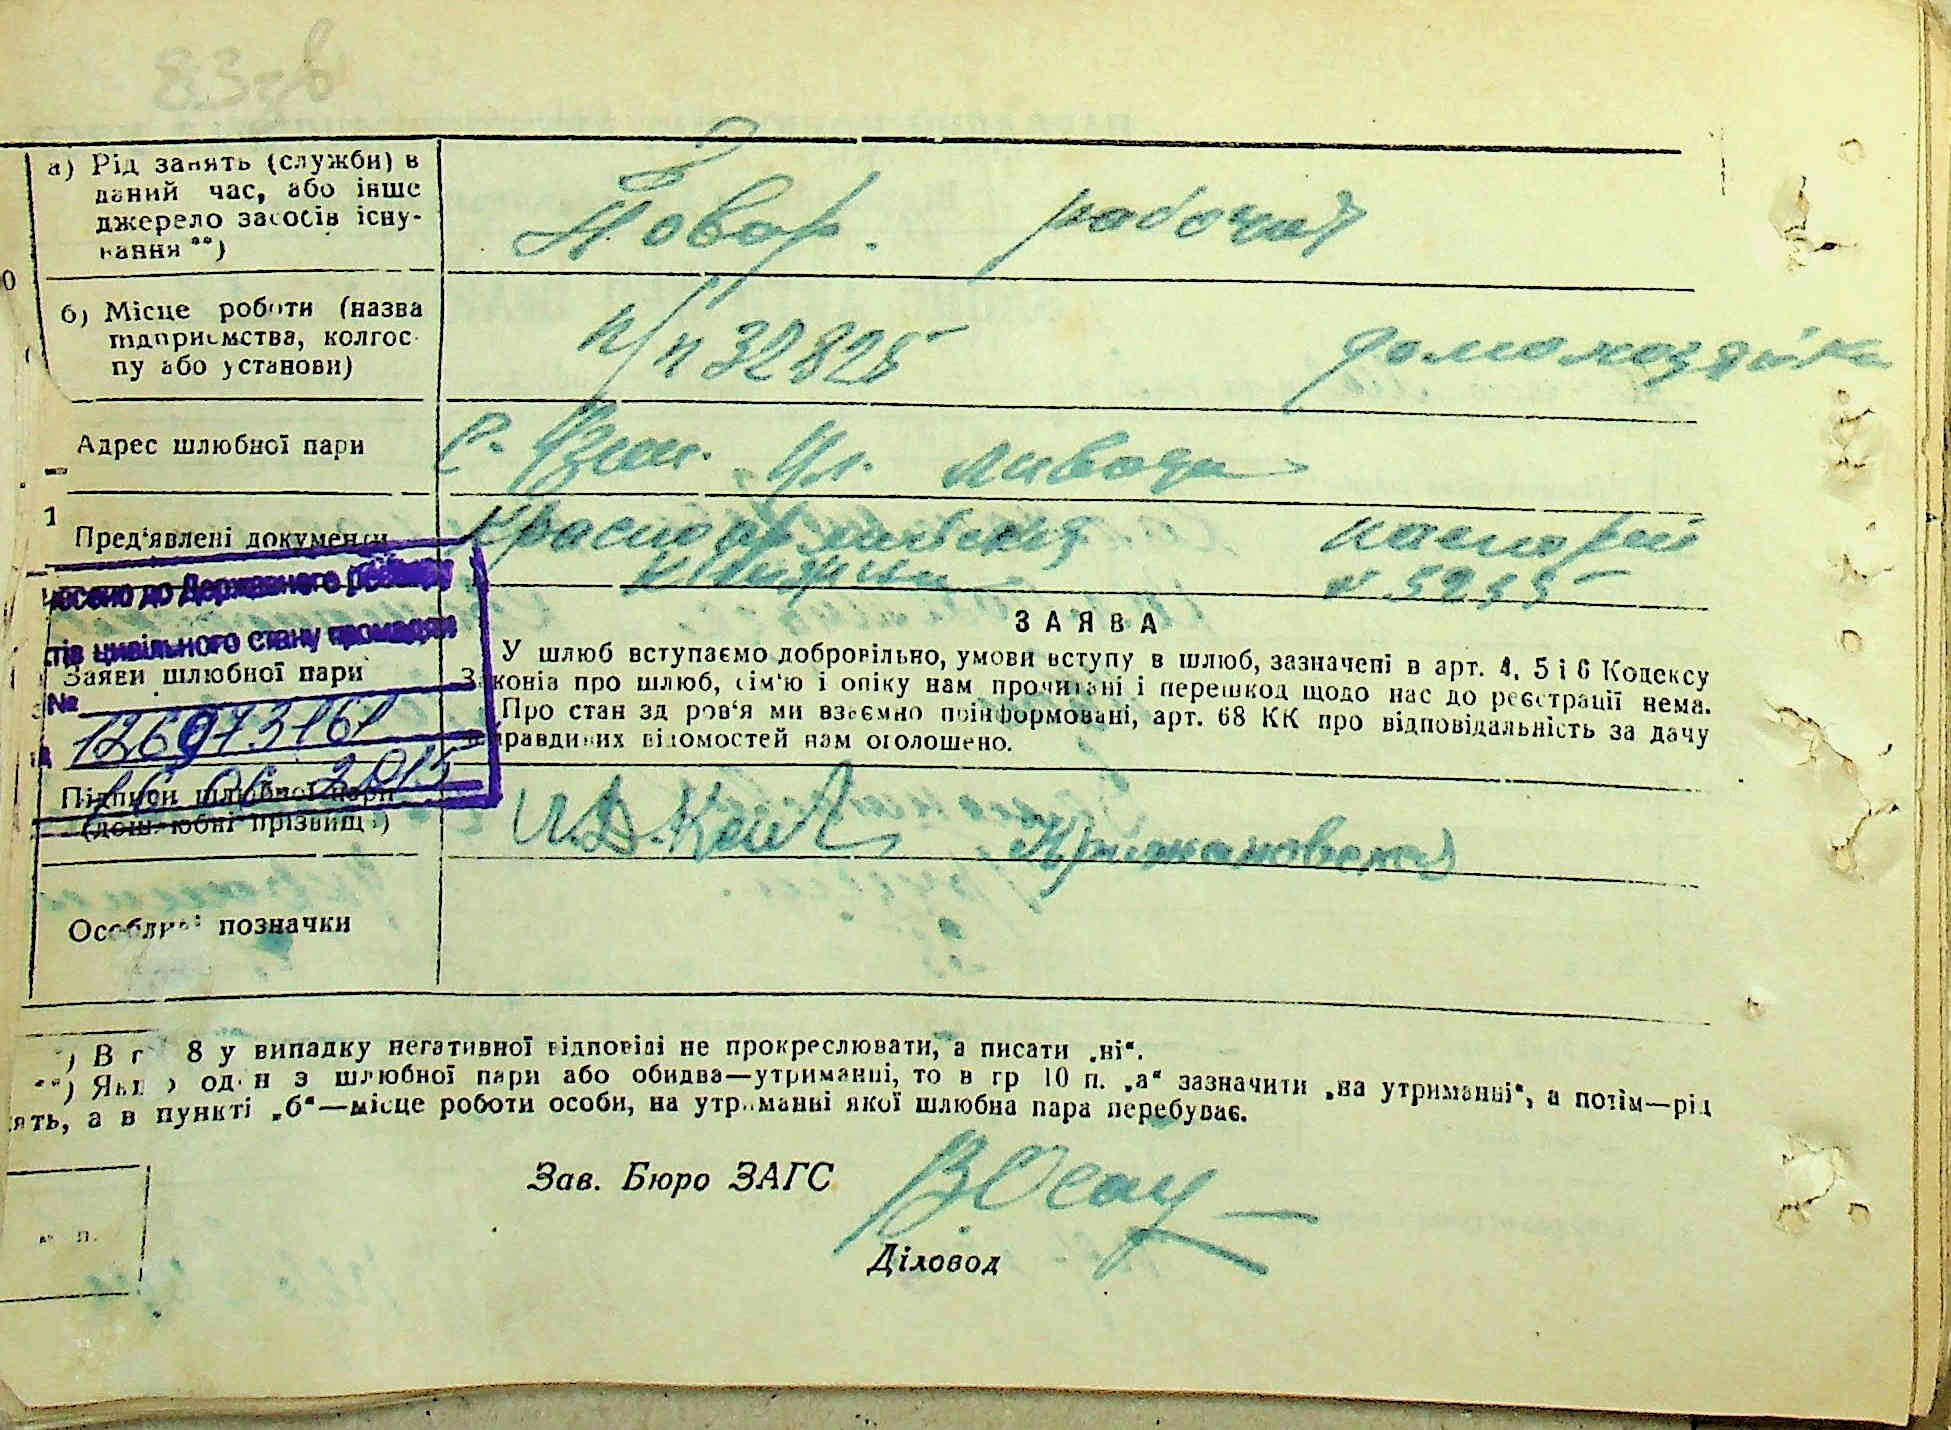 83зв
а) Рід занять (служби) в
даний час, або інше
джерело засобів існу-
вання **)
Повар. рабочая
б) Місце роботи (назва
підприємства, колгос-
пу або установи)
п/п 32825 домохозяйка
Адрес шлюбної пари
с. Узин. ул.
Пред'явлені документи
Красноармейская паспорт
книжка № 5235
несено до Державного реєстру
тів цивільного стану громадян
№
126973161
16 06 2015
Заяви шлюбної пари
ЗАЯВА
У шлюб вступаємо добровільно, умови вступу в шлюб, зазначені в арт. 4, 5 і 6 Кодексу
Законів про шлюб, сім'ю і опіку нам прочитані і перешкод щодо нас до реєстрації нема.
Про стан здоров'я ми взаємно поінформовані, арт. 68 КК про відповідальність за дачу
неправдивих відомостей нам оголошено.
Підписи шлюбної пари
(дошлюбні прізвища)
Крижановская
Особливі позначки
*) В гр 8 у випадку негативної відповіді не прокреслювати, а писати „ні“.
**) Якщо один з шлюбної пари або обидва—утриманці, то в гр 10 п. „а“ зазначити „на утриманні“, а потім—рід
нять, а в пункті „б“—місце роботи особи, на утриманні якої шлюбна пара перебуває.
Зав. Бюро ЗАГС
Діловод
м. п.